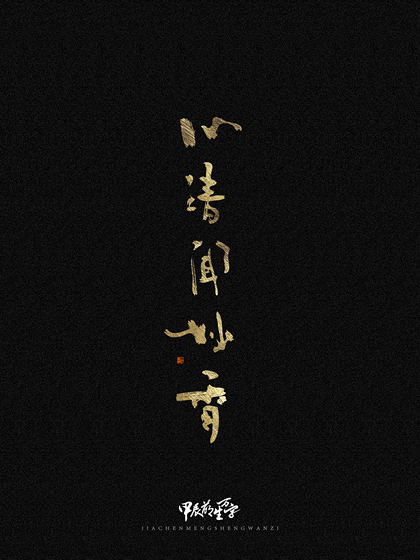 心清闻妙香
甲辰萌生万字
JIACHENMENGSHENGWANZI